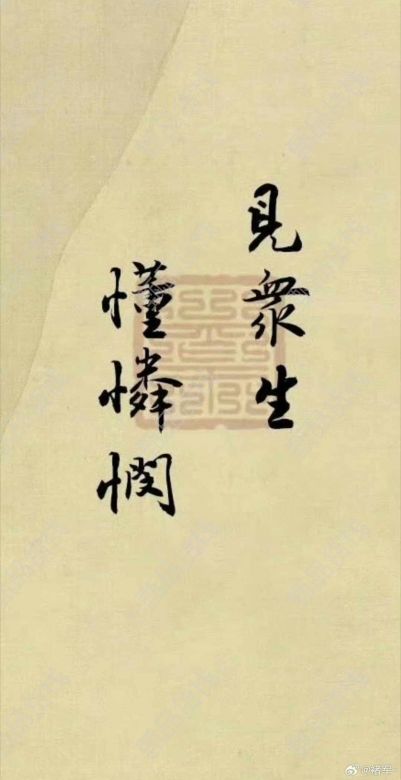 見衆生
懂憐憫